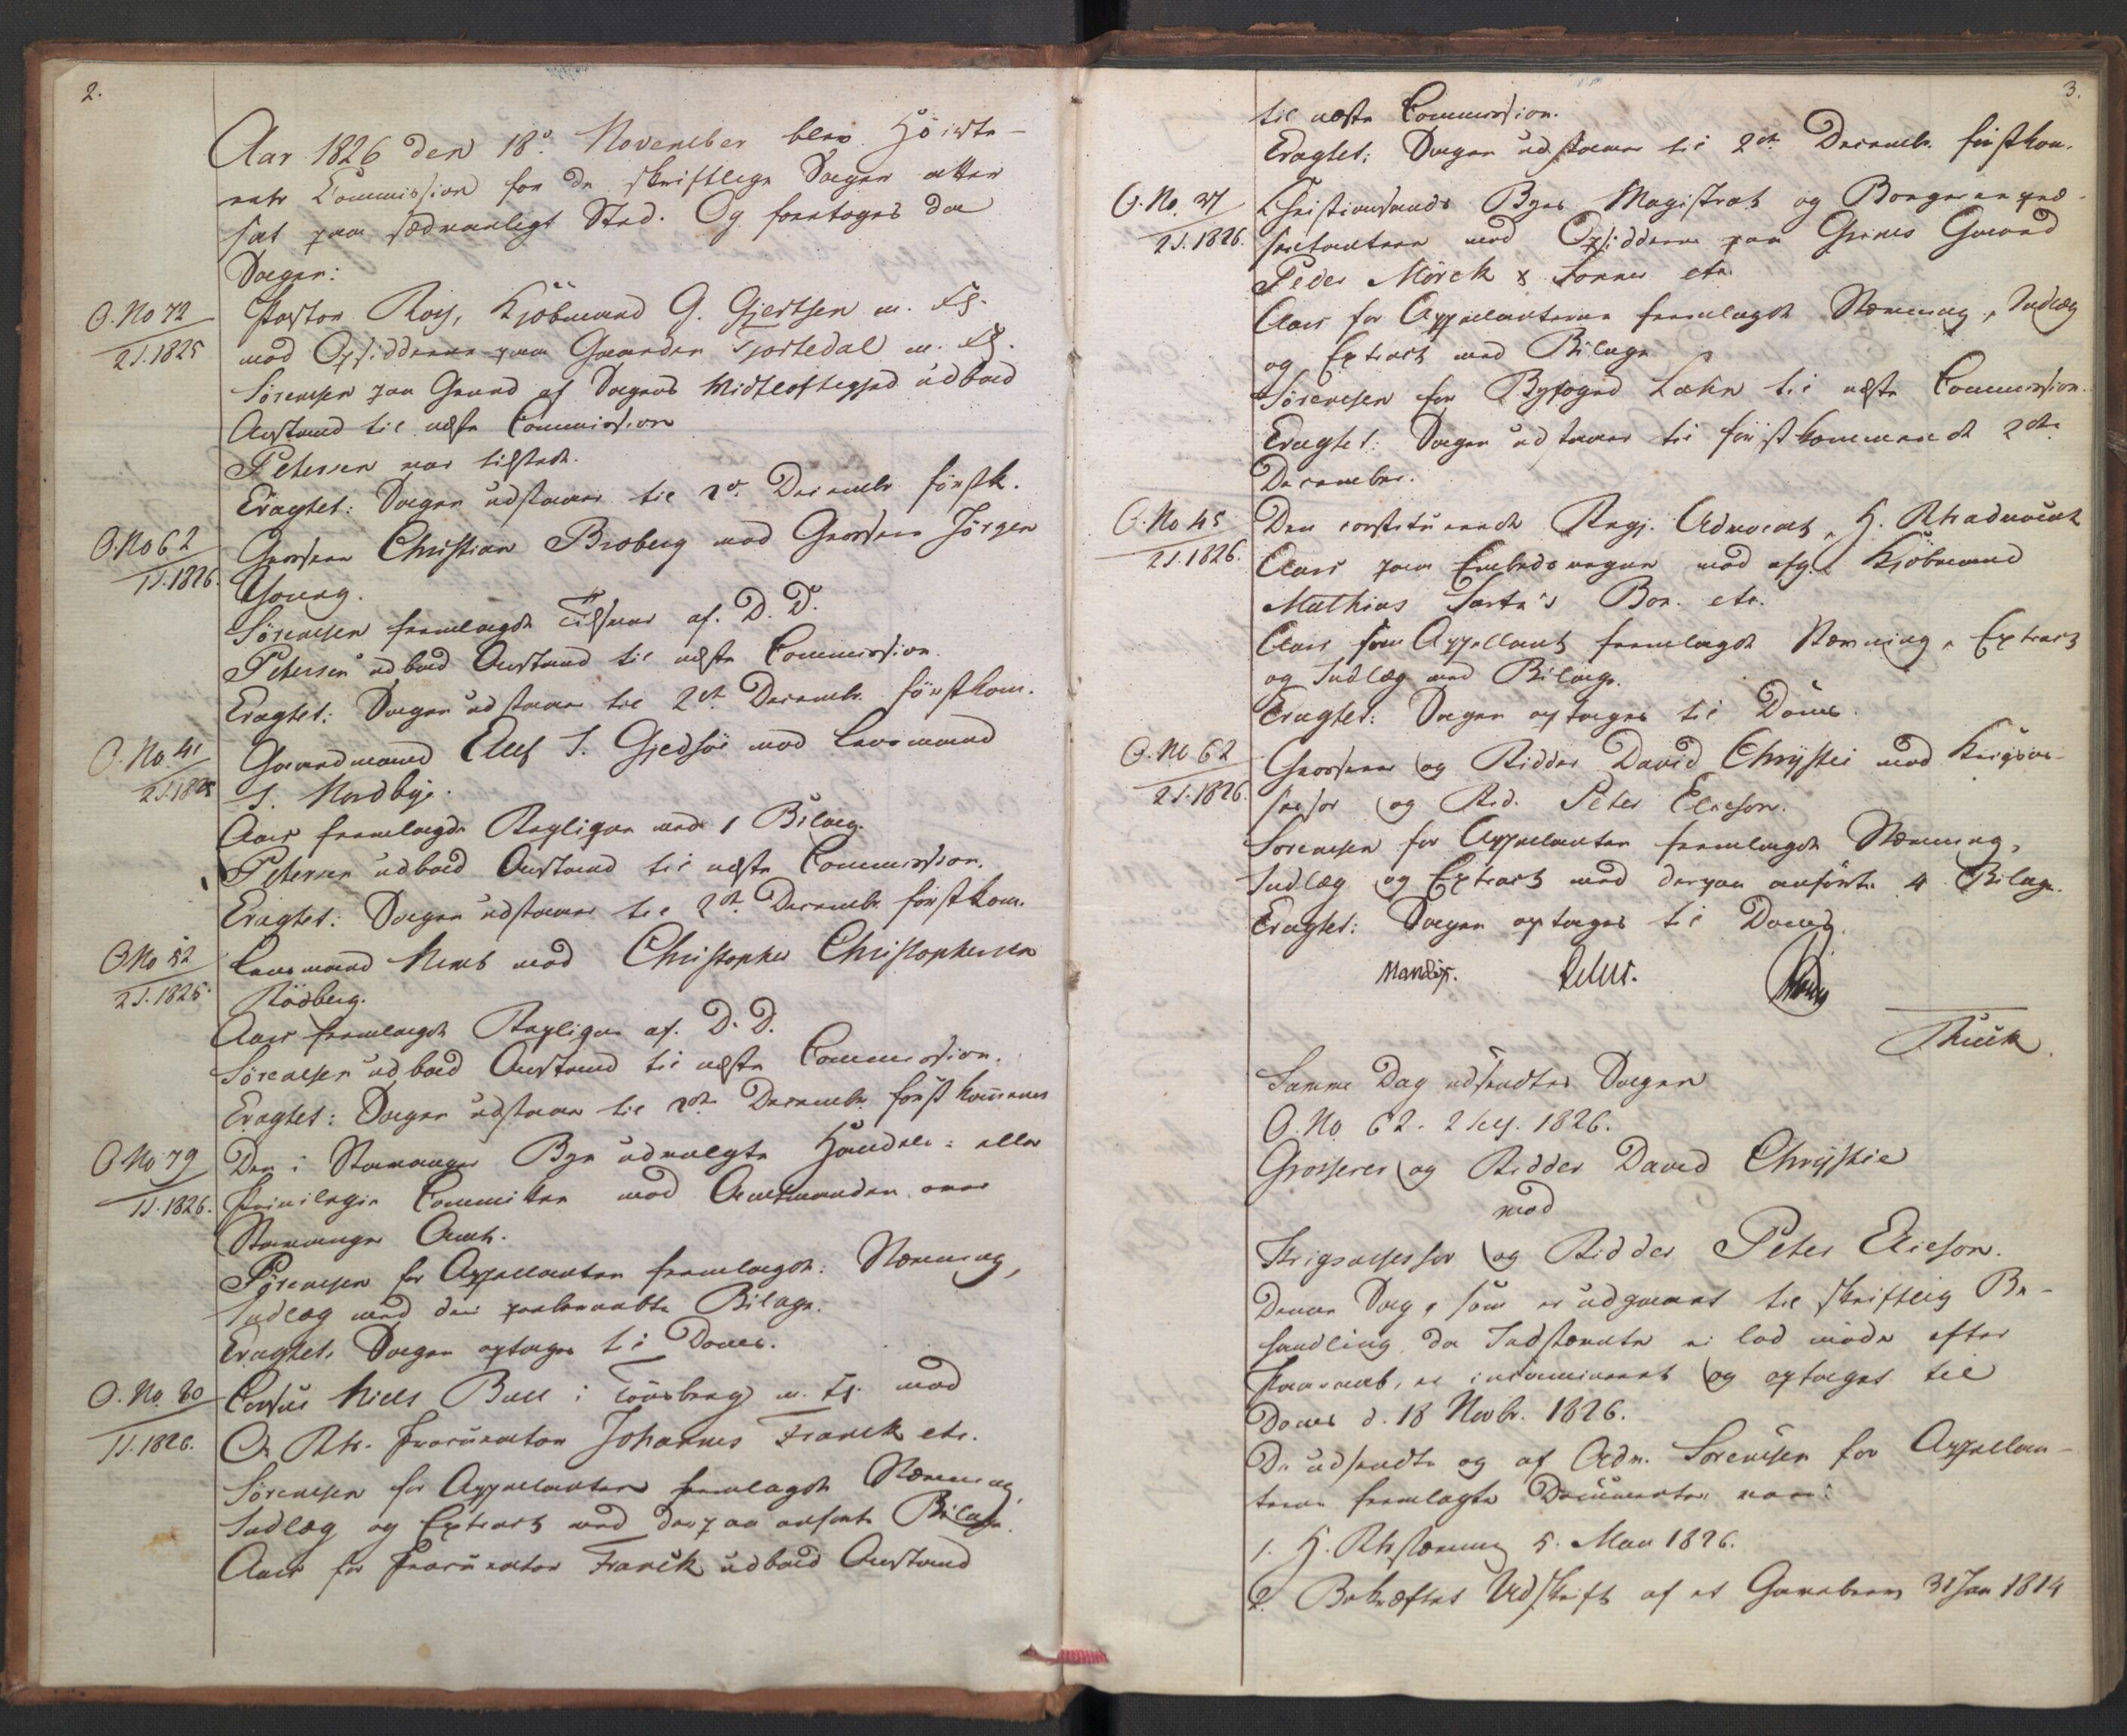 2.
Aar 1826 den 18de November blev Höieste-
rets Commission for de skriftlige Sager atter
sat paa sædvanligt Sted. Og foretoges da
Sagen:
O. No 72
2 S. 1825
Pastor Roy, Kjöbmand G. Gjertsen m. fl.
mod Opsidderne paa Gaarden Tjostedal m. fl.
Sörensen paa Grund af Sagens Vidtløftighed udbad
Anstand til næste Commission
Petersen var tilstede.
Eragtet: Sagen udstaaer til 2de Decembr förstk.
O. No 62
1 S. 1826.
Grosserer Christian Broberg mod Grosserer Jörgen
Young.
Sörensen fremlagde Tilsvar af D. D.
Petersen udbad Anstand til næste Commission.
Eragtet: Sagen udstaaer til 2det Decembr. förstkom.
O. No 41
2 S. 1825
Gaardmand Elef S. Gjedsöe mod Lensmand
S. Nordbye.
Aars fremlagde Repliqve med 1 Bilag.
Petersen udbad Anstand til næste Commission.
Eragtet: Sagen udstaaer til 2de Decembr. förstkom.
O. No 52
2 S. 1825.
Lensmand Nims mod Christopher Christophersen
Rödberg.
Aars fremlagde Repliqve af D. D.
Sörensen udbad Anstand til næste Commission.
Eragtet: Sagen udstaaer til 2de Decembr. förstkommend
O. No 79
1 S. 1826.
Den i Stavanger Bye udvalgte Handels- eller
Privilegie Committee mod Amtmanden over
Stavanger Amt.
Sörensen for Appellanten fremlagde: Stævning,
Indlæg med de paaberaabte Bilage.
Eragtet, Sagen optages til Doms.
O. No. 80
1 S. 1826.
Consul Niels Bull i Tönsberg m. fl. mod
O. Rts. Procurator Johannes Franck etc.
Sörensen for Appellanten fremlagde Stævning,
Indlæg og Extract med derpaa anførte Bilage.
Aars for Procurator Franck udbad Anstand
3.
til næste Commission.
Eragtet; Sagen udstaaer til 2de Decembr. förstkom.
O. No. 37
2 S. 1826.
Christiansands Byes Magistrat og Borgerrepræ-
sentantere mod Opsidderne paa Grims Gaard
Peder Mörck & Sönner etc.
Aars for Appellanterne fremlagde Stævning, Indlæg
og Extract med Bilage
Sörensen for Byfoged Lahn til næste Commission.
Eragtet: Sagen udstaaer til förstkommende 2de
December.
O. No 45
2 S. 1826.
Den constituerede Regj. Advocat, H. Rtsadvocat
Aars paa Embedsvegne mod afg. Kjöbmand
Mathias Sartz's Boe. etc.
Aars som Appellant fremlagde Stævning, Extract
og Indlæg med Bilage.
Eragtet: Sagen optages til Doms.
O. No 62
2 S. 1826.
Grosserer og Ridder David Chrystie mod Krigsas-
sessor og Rid. Peter Elieson.
Sörensen for Appellanten fremlagde Stævning,
Indlæg og Extract med derpaa anførte 4 Bilage.
Eragtet: Sagen optages til Doms.
Mandix.
Samme Dag udsendtes Sagen
O. No. 62. 2 Ses. 1826.
Grosserer og Ridder David Chrystie
mod
Krigsassessor og Ridder Peter Elieson.
Denne Sag, som er udgaaet til skriftlig Be-
handling da Indstævnte ei lod møde efter
Paaraab, er incamineret og optaget til
Doms d. 18 Novbr. 1826.
De udsendte og af Adv. Sörensen for Appellan-
ten fremlagte Documenter vare:
1. H. Rtsstævning 5. Mai 1826.
2. Bekræftet Udskrift af et Gavebrev 31 Jan 1814